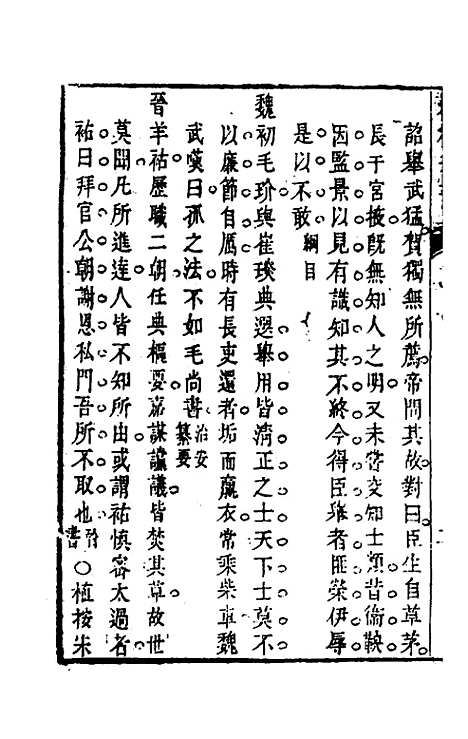 詔舉武猛賀獨無所薦帝問其故對曰臣生自草茅
長于宮掖既無知人之明又未嘗交知士類昔衞鞅
因監景以見有識知其不終今得臣舉者匪榮伊辱
是以不敢綱目
魏初毛玠與崔琰典選舉用皆清正之士天下士莫不
以廉節自厲時有長吏還者垢面羸衣常乘柴車魏
武嘆曰孤之法不如毛尚書治安纂要
晉羊祜歷職二朝任典樞要嘉謀讜議皆焚其草故世
莫聞凡所進達人皆不知所由或謂祜慎密太過者
祜曰拜官公朝謝恩私門吾所不取也晉書○植按朱